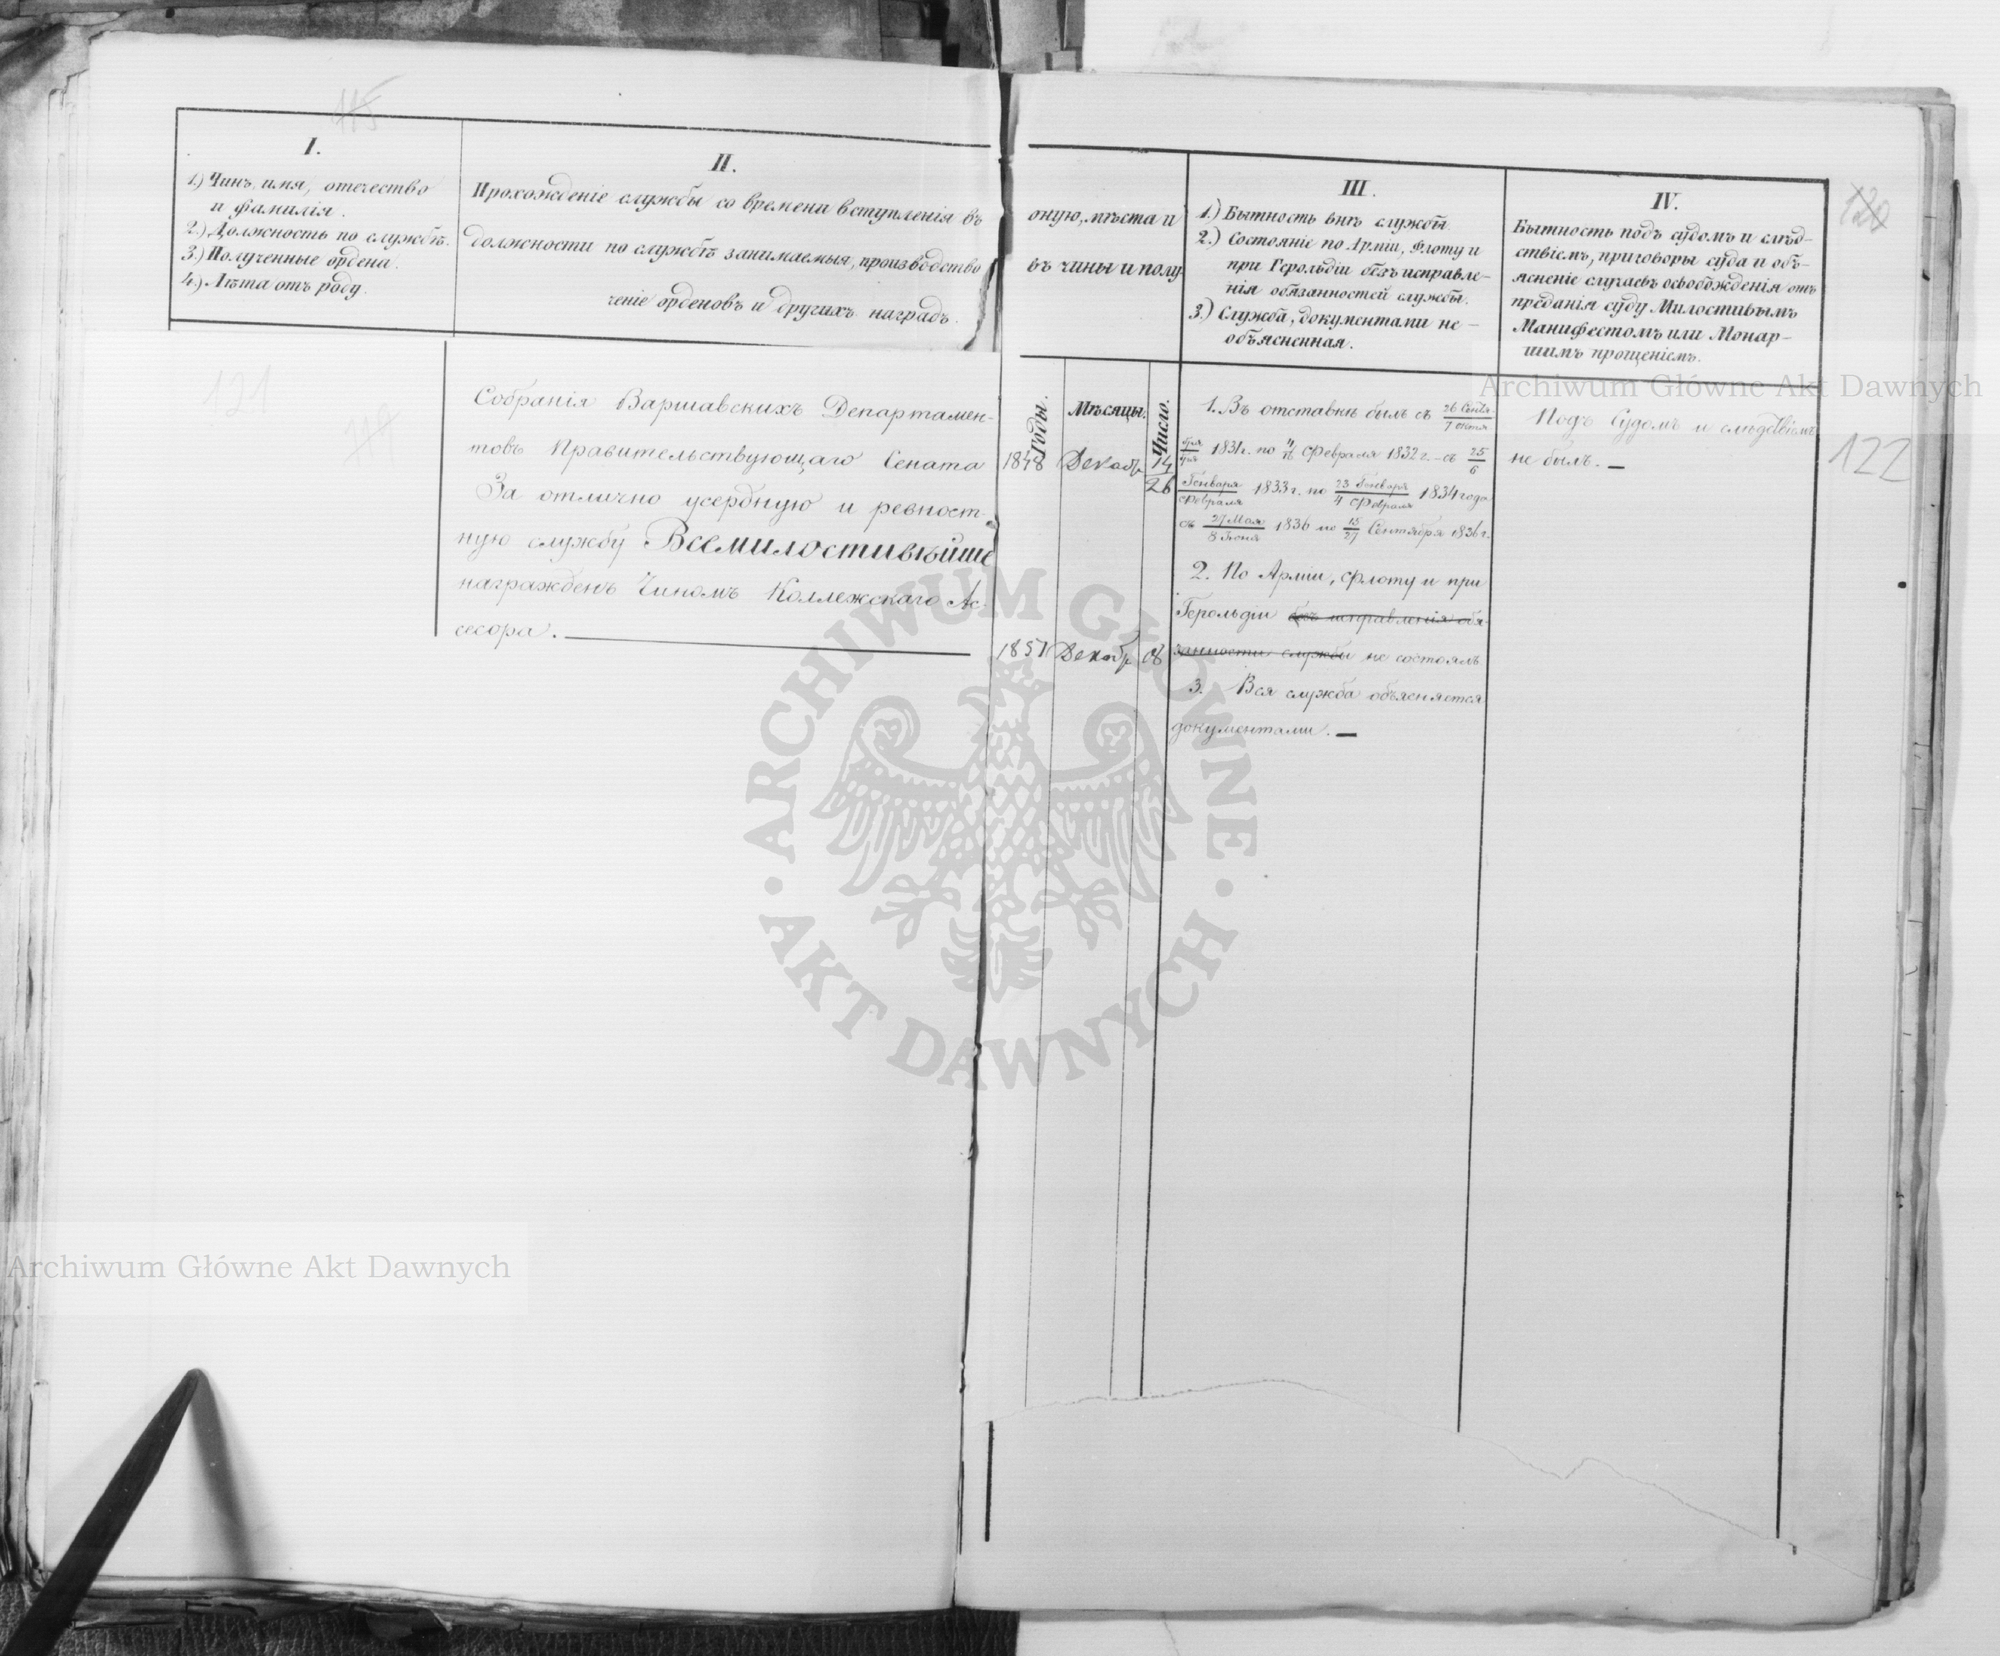 115
I.
1.) Чинъ, имя, отечество
и фамилія.
2.) Должность по службѣ.
3.) Полученные ордена.
4.) Лѣта отъ роду.
II.
Прохожденіе службы со времени вступленія въ
должности по службѣ занимаемыя, производство
ченіе орденовъ и другихъ наградъ.
оную, мѣста и
въ чины и полу
III.
1.) Бытность внѣ службы
2.) Состояніе по Арміи, Флоту и
при Герольдіи безъ исправле-
нія обязанностей службы.
3.) Служба, документами не-
объясненная.
IV.
Бытность подъ судомъ и слѣд-
ствіемъ, приговоры суда и объ-
ясненіе случаевъ освобожденія отъ
преданія суду Милостивымъ
Манифестомъ или Монар-
шимъ прощеніемъ.
120
121
119
Собранія Варшавскихъ Департамен-
товъ Правительствующаго Сената
За отлично усердную и ревност-
ную службу Всемилостивѣйше
награжденъ Чиномъ Коллежскаго Ас-
сесора.
Годы.
Мѣсяцы.
Число.
1848 Декабр 14
26
1851 Декабр 08
1. Въ отставкѣ былъ съ 26 Сентя-/7 Октя
бря/бря 1831 г. по 4/16 Февраля 1832 г. - съ 25/6
Генваря/Февраля 1833 г. по 23 Генваря/4 Февраля 1834 года
съ 27 Мая/8 Іюня 1836 по 15/27 Сентября 1836 г.
2. По Арміи, Флоту и при
Герольдіи безъ исправленія обя-
занности службы не состоялъ
3. Вся служба объясняется
документами.
Подъ Судомъ и слѣдствіемъ
не былъ.
122
Archiwum Główne Akt Dawnych
ARCHIWUM GŁÓWNE
AKT DAWNYCH
Archiwum Główne Akt Dawnych